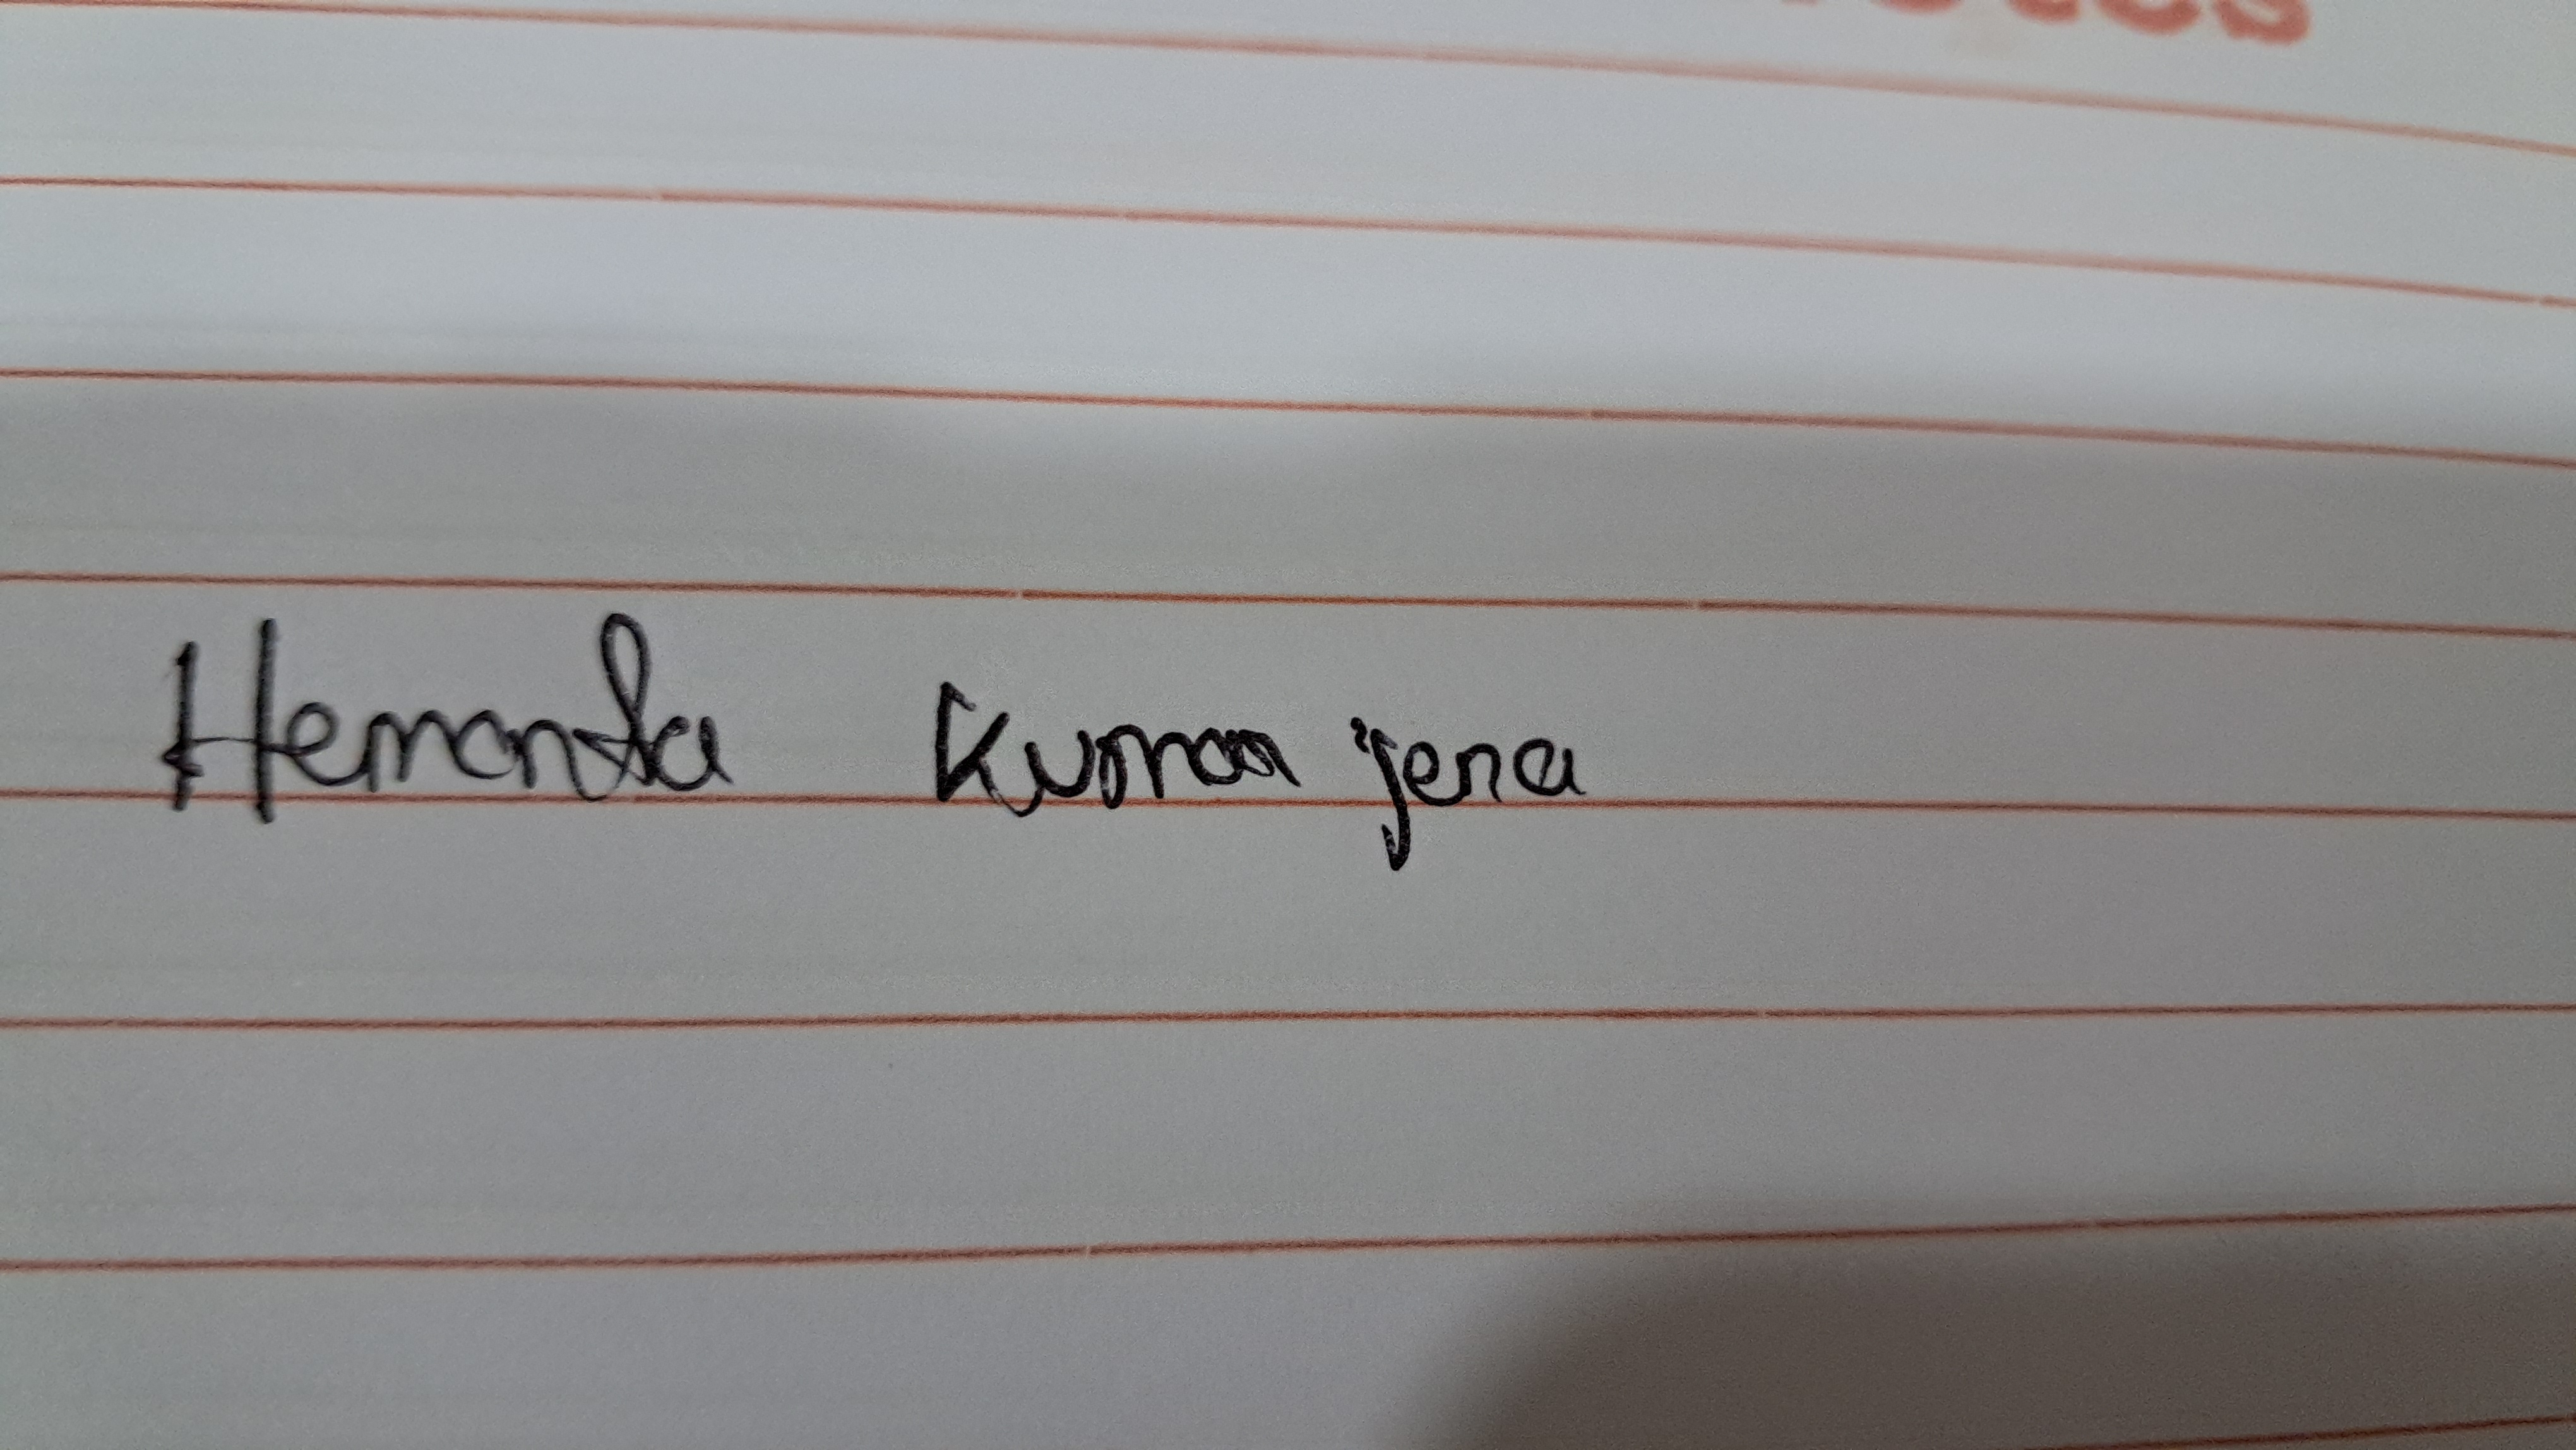 Hemanta Kumar jena